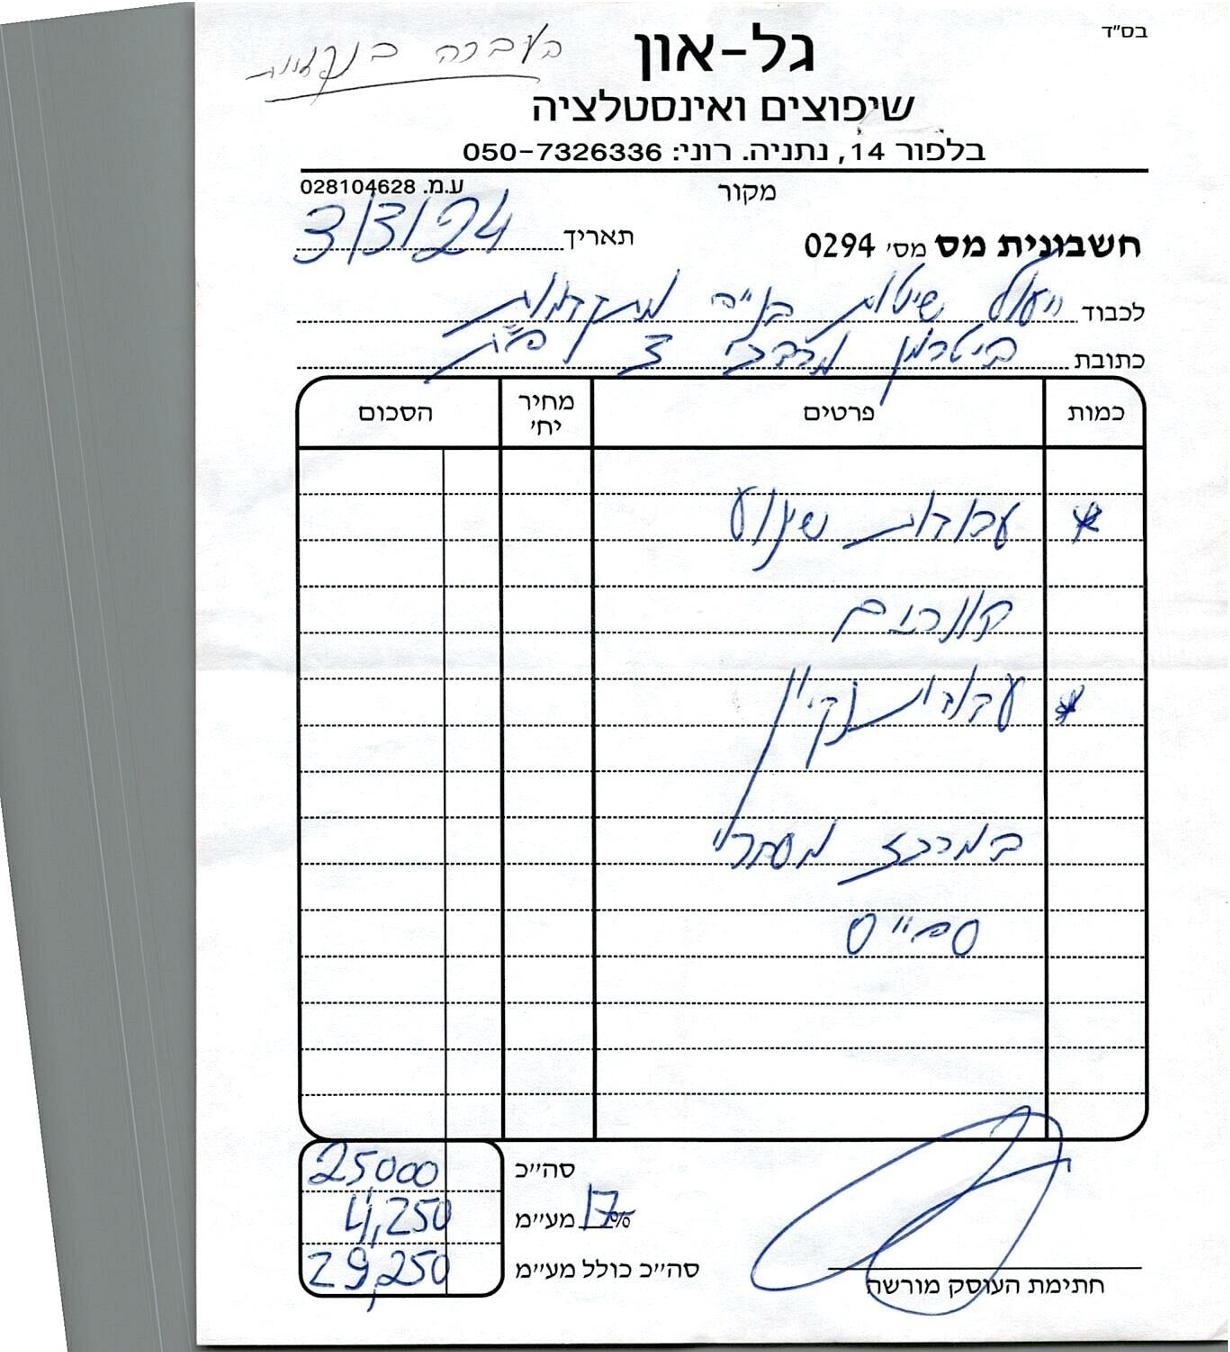 בס"ד
בעברה בנקאית
גל-און
שיפוצים ואינסטלציה
בלפור 14, נתניה. רוני: 050-7326336
ע.מ. 028104628
מקור
חשבונית מס מס' 0294 תאריך 3/3/24
לכבוד שיטות בנייה מתקדמות
כתובת ביטרמן מרדכי 3 פ"ת
כמות פרטים מחיר יח' הסכום
* עבודות שינוע
* עבודות נקיון
במרכז מסחרי
סה"כ 25000
17% מע"מ 4,250
סה"כ כולל מע"מ 29,250
חתימת העוסק מורשה